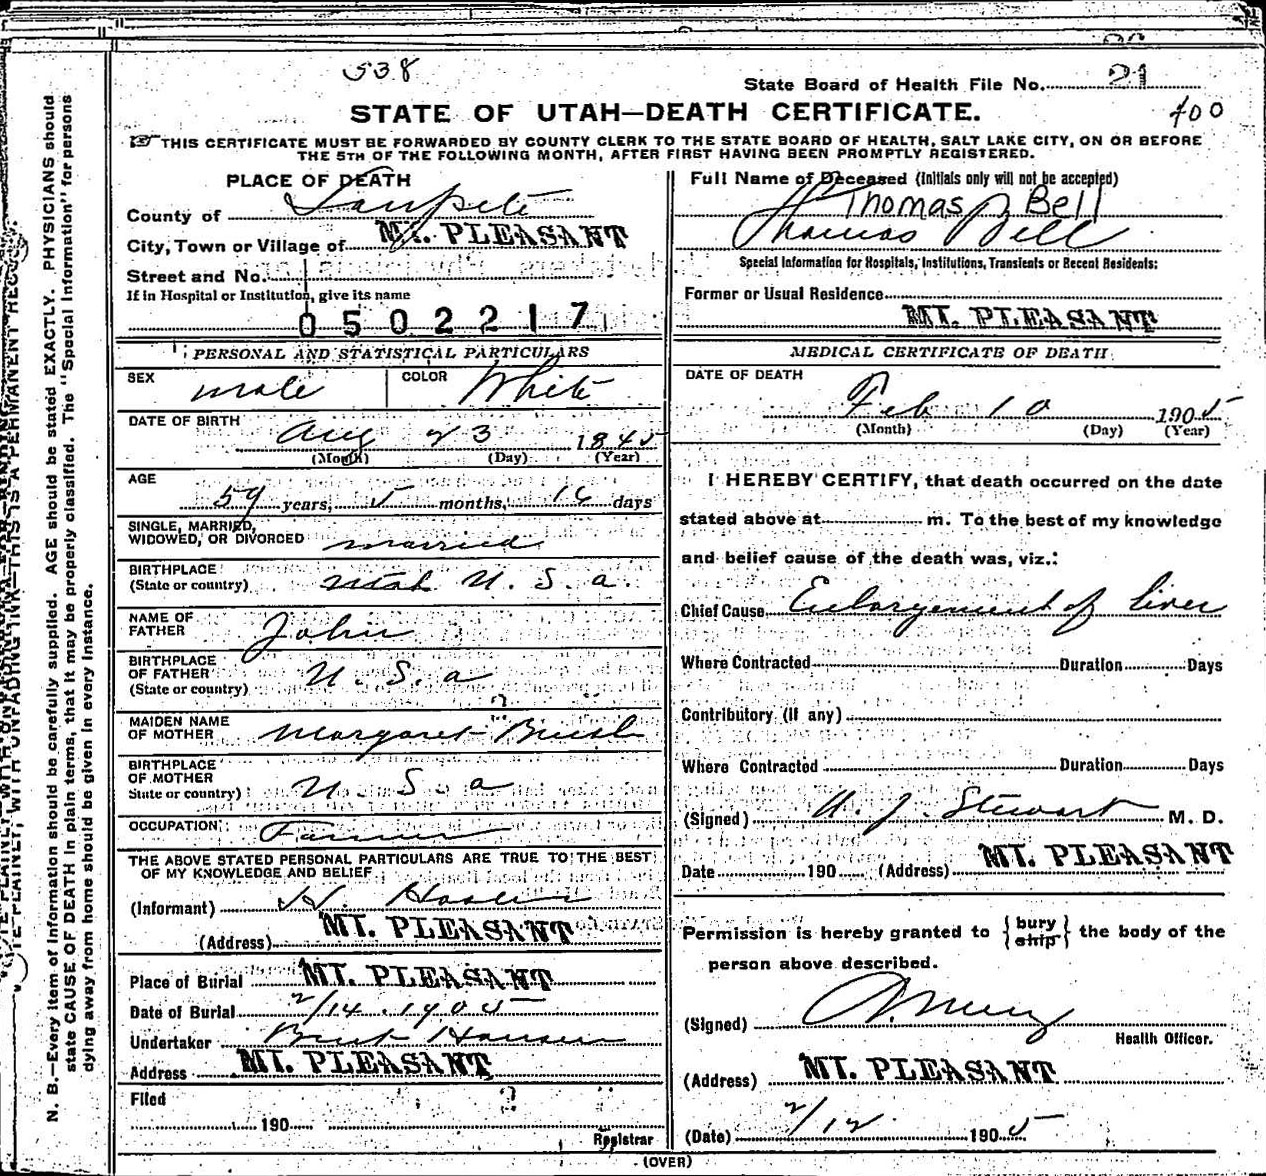 538
State Board of Health File No. 21
STATE OF UTAH—DEATH CERTIFICATE.
400
THIS CERTIFICATE MUST BE FORWARDED BY COUNTY CLERK TO THE STATE BOARD OF HEALTH, SALT LAKE CITY, ON OR BEFORE
THE 5TH OF THE FOLLOWING MONTH, AFTER FIRST HAVING BEEN PROMPTLY REGISTERED.
PLACE OF DEATH
County of Sanpete
City, Town or Village of MT. PLEASANT
Street and No.
If in Hospital or Institution, give its name
0502217
PERSONAL AND STATISTICAL PARTICULARS
SEX male COLOR White
DATE OF BIRTH Aug 23 1845
(Month) (Day) (Year)
AGE
59 years, 5 months, 16 days
SINGLE, MARRIED,
WIDOWED, OR DIVORCED married
BIRTHPLACE
(State or country) Utah U. S. a.
NAME OF
FATHER John
BIRTHPLACE
OF FATHER
(State or country) U. S. a
MAIDEN NAME
OF MOTHER Margaret
BIRTHPLACE
OF MOTHER
State or country) U. S. a
OCCUPATION Farmer
THE ABOVE STATED PERSONAL PARTICULARS ARE TRUE TO THE BEST
OF MY KNOWLEDGE AND BELIEF
(Informant) H
(Address) MT. PLEASANT
Place of Burial MT. PLEASANT
Date of Burial 2/14. 1905
Undertaker Hansen
Address MT. PLEASANT
Filed
190
Registrar
Full Name of Deceased (Initials only will not be accepted)
Thomas Bell
Thomas Bell
Special Information for Hospitals, Institutions, Transients or Recent Residents:
Former or Usual Residence
MT. PLEASANT
MEDICAL CERTIFICATE OF DEATH
DATE OF DEATH
Feb 10 1905
(Month) (Day) (Year)
I HEREBY CERTIFY, that death occurred on the date
stated above at m. To the best of my knowledge
and belief cause of the death was, viz.:
Chief Cause Enlargement of liver
Where Contracted Duration Days
Contributory (if any)
Where Contracted Duration Days
(Signed) Stewart M. D.
Date 190 (Address) MT. PLEASANT
Permission is hereby granted to {bury ship} the body of the
person above described.
(Signed)
Health Officer.
(Address) MT. PLEASANT
(Date) 2/12 1905
(OVER)
N. B.—Every item of information should be carefully supplied. AGE should be stated EXACTLY. PHYSICIANS should
state CAUSE OF DEATH in plain terms, that it may be properly classified. The "Special Information" for persons
dying away from home should be given in every instance.